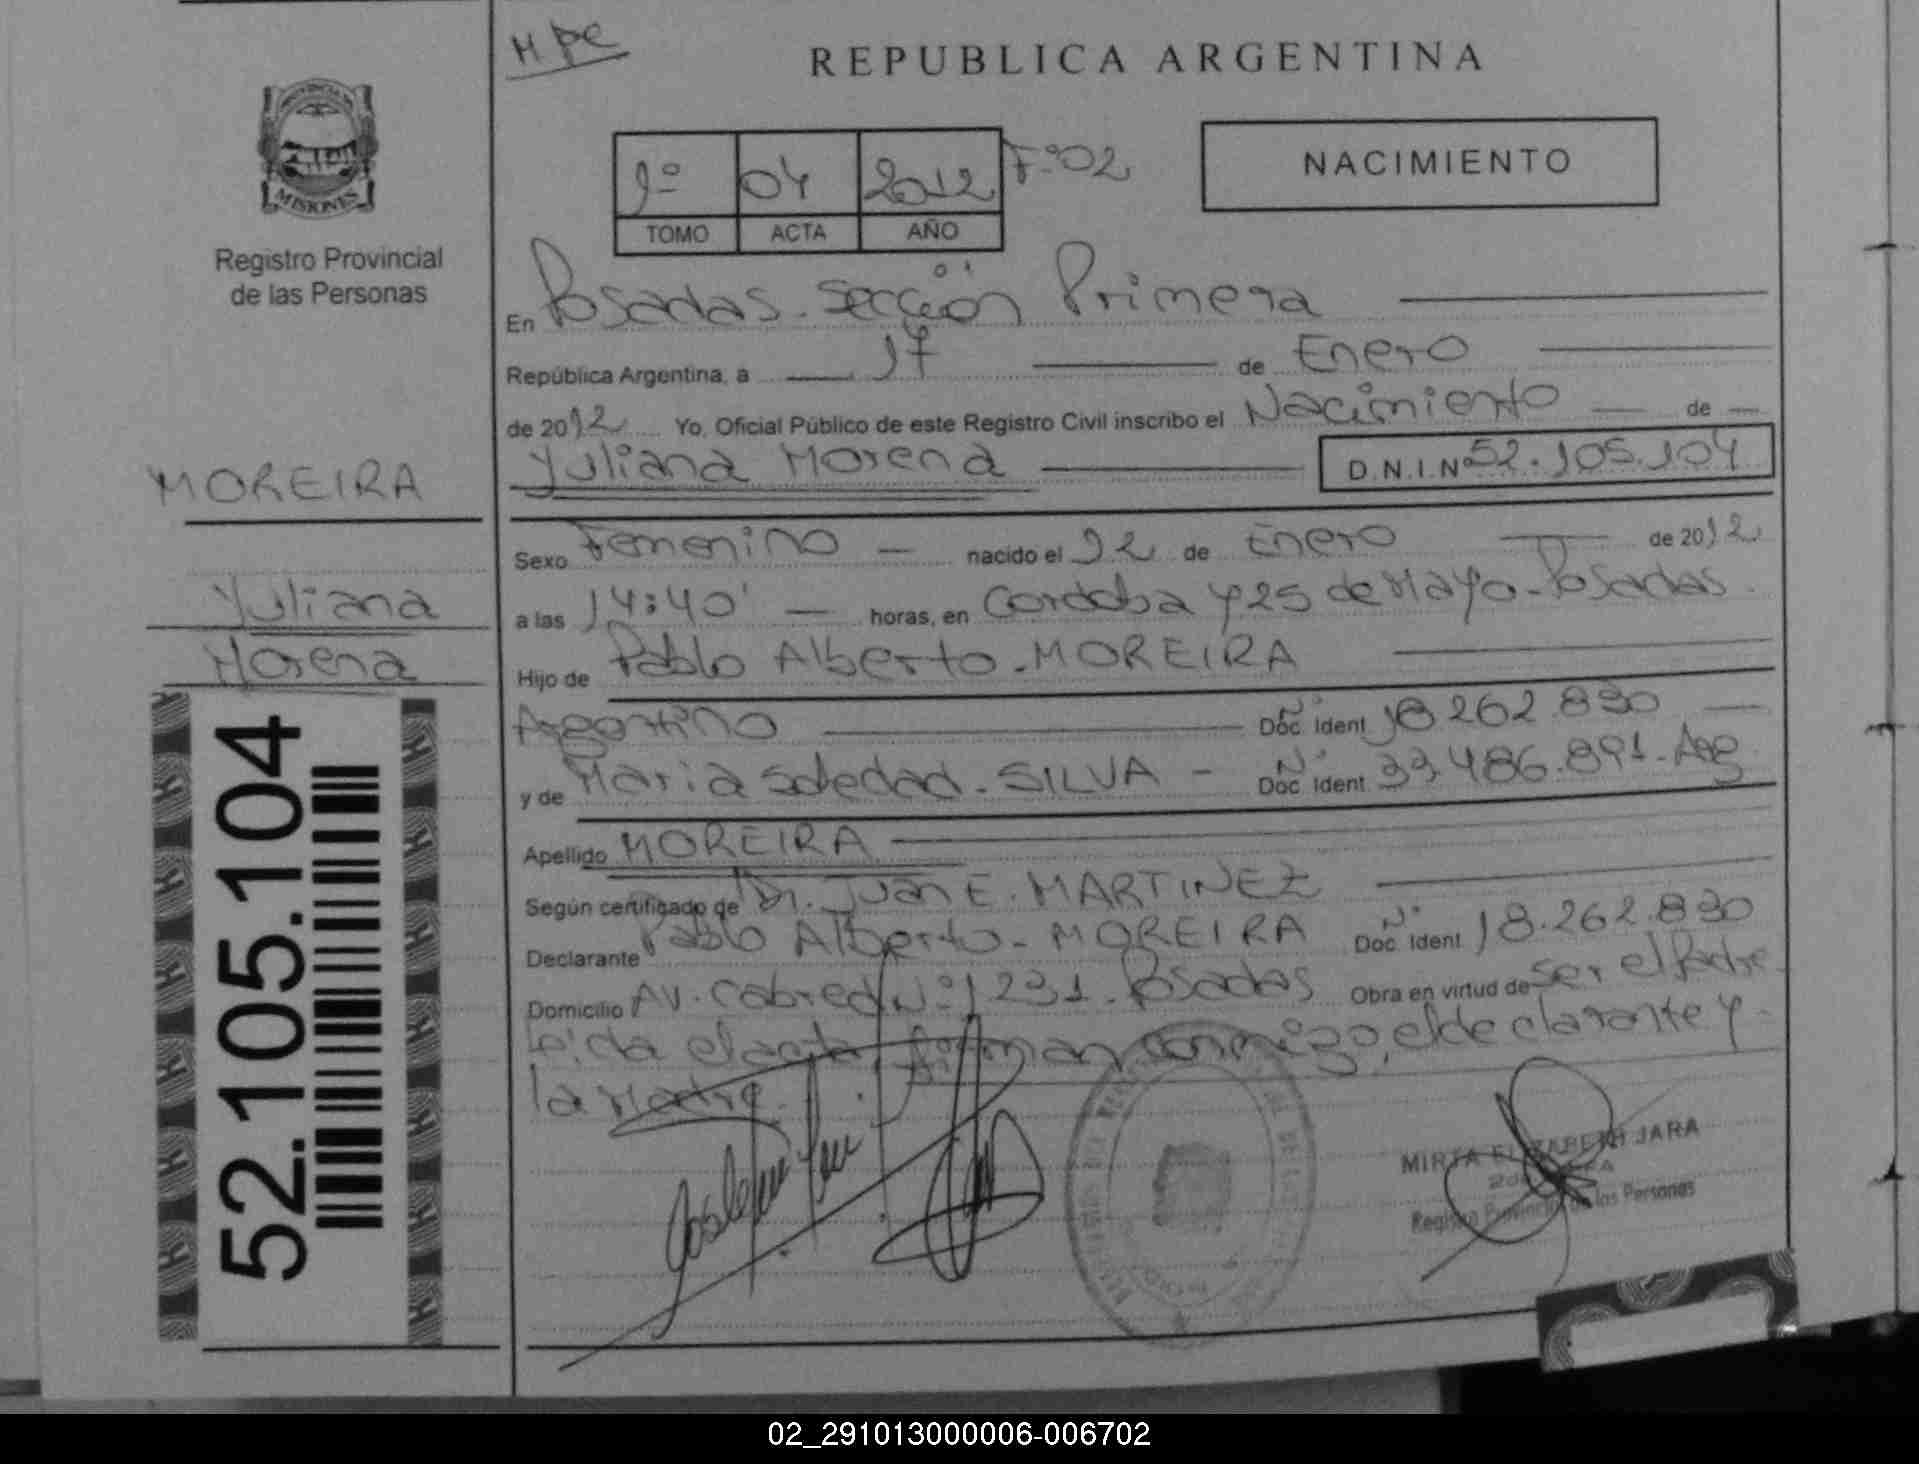 MPC
REPUBLICA ARGENTINA
PROVINCIA DE
MISIONES
Registro Provincial
de las Personas
1º 04 2012 Fº02
TOMO ACTA AÑO
NACIMIENTO
En Posadas. Sección Primera
República Argentina, a 17 de Enero
de 2012 Yo, Oficial Público de este Registro Civil inscribo el Nacimiento de
Yuliana Morena D.N.I.Nº 52.105.104
MOREIRA
Yuliana
Morena
52.105.104
Sexo Femenino nacido el 12 de Enero de 2012
a las 14:40' horas, en Cordoba y 25 de Mayo-Posadas.
Hijo de Pablo Alberto-MOREIRA
Argentino Nº Doc. Ident. 18.262.830
y de Maria Soledad-SILVA - Nº Doc. Ident. 33.486.891-Arg
Apellido MOREIRA
Según certificado de Dr. Juan E. MARTINEZ
Declarante Pablo Alberto-MOREIRA Nº Doc. Ident. 18.262.830
Domicilio AV. Cabred Nº1231-Posadas Obra en virtud de Ser el Padre
Leida el acta, firman conmigo, el declarante y
la Madre.
MIRTA ELIZABETH JARA
Registro Provincial de las Personas
02_291013000006-006702